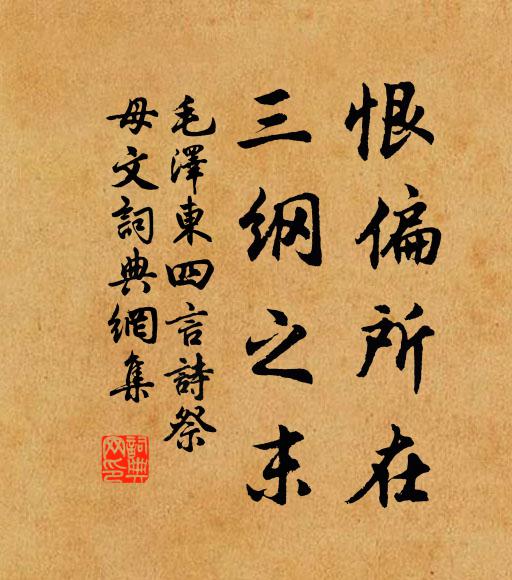 恨偏所在
三纲之末
毛澤東四言詩祭
母文詞典網集
詞典
网印